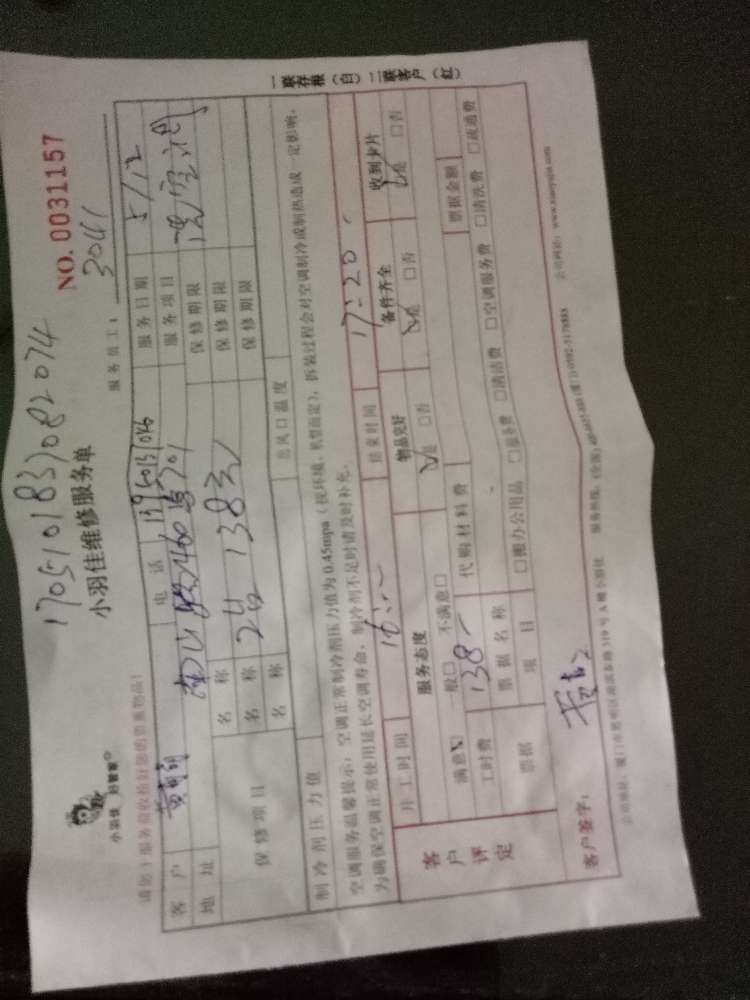 1705101837082074
小羽佳维修服务单
NO. 0031157
小羽佳 好管家
服务员工: 3041
请您(服务前收检好您的贵重物品)
客户 电话 服务日期 5/12
地址 服务项目 洗空调
保修项目 名称 保修期限
名称 2台 138元 保修期限
名称 保修期限
制冷剂压力值 出风口温度
空调服务温馨提示:空调正常制冷剂压力值为0.45mpa(视环境、机型而定),拆装过程会对空调制冷或制热造成一定影响,
为确保空调正常使用延长空调寿命,制冷剂不足时请及时补充。
开工时间 16: 结束时间 17:20
客户评定 服务态度 物品完好 备件齐全 收到卡片
满意☑ 一般□ 不满意□ ☑是 □否 ☑是 □否 ☑是 □否
工时费 138 代购材料费 票据金额
票据 票据名称
项目 □搬办公用品 □服务费 □清洁费 □空调服务费 □清洗费 □疏通费
客户签字:
公司地址:厦门市思明区 319号A幢 服务热线:(全国) (厦门)0592-5178888 公司网站:www.xiaoyujia.com
一联存根(白) 二联客户(红)